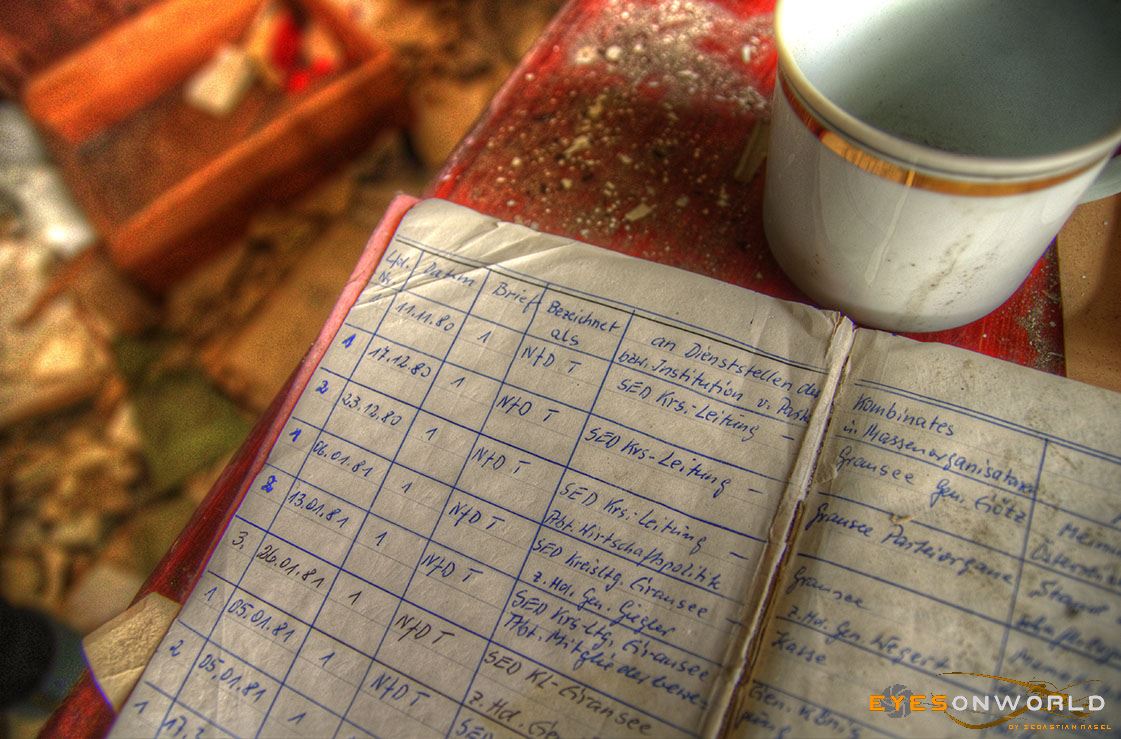 Lfd. Nr. Datum Brief Bezeichnet als an Dienststellen der bzw. Institution v. Kombinates in Massenorganisationen
1 11.11.80 1 NfD T SED Krs.-Leitung – Gransee Gen. Götz
2 17.12.80 1 NfD T SED Krs-Leitung – Gransee Parteiorgane
1 23.12.80 1 NfD T SED Krs.-Leitung – Abt. Wirtschaftspolitik Gransee
2 06.01.81 1 NfD T SED Kreisltg. Gransee z. Hd. Gen. z. Hd. Gen. Wegert
3. 13.01.81 1 NfD T SED Krs-Ltg. Gransee Abt. Mitgliederwesen Kasse
1 26.01.81 1 NfD T SED KL-Gransee z. Hd. Gen. König
2 05.01.81 1 NfD T SED
1 05.01.81 1
17.
EYESONWORLD
BY SEBASTIAN NASEL